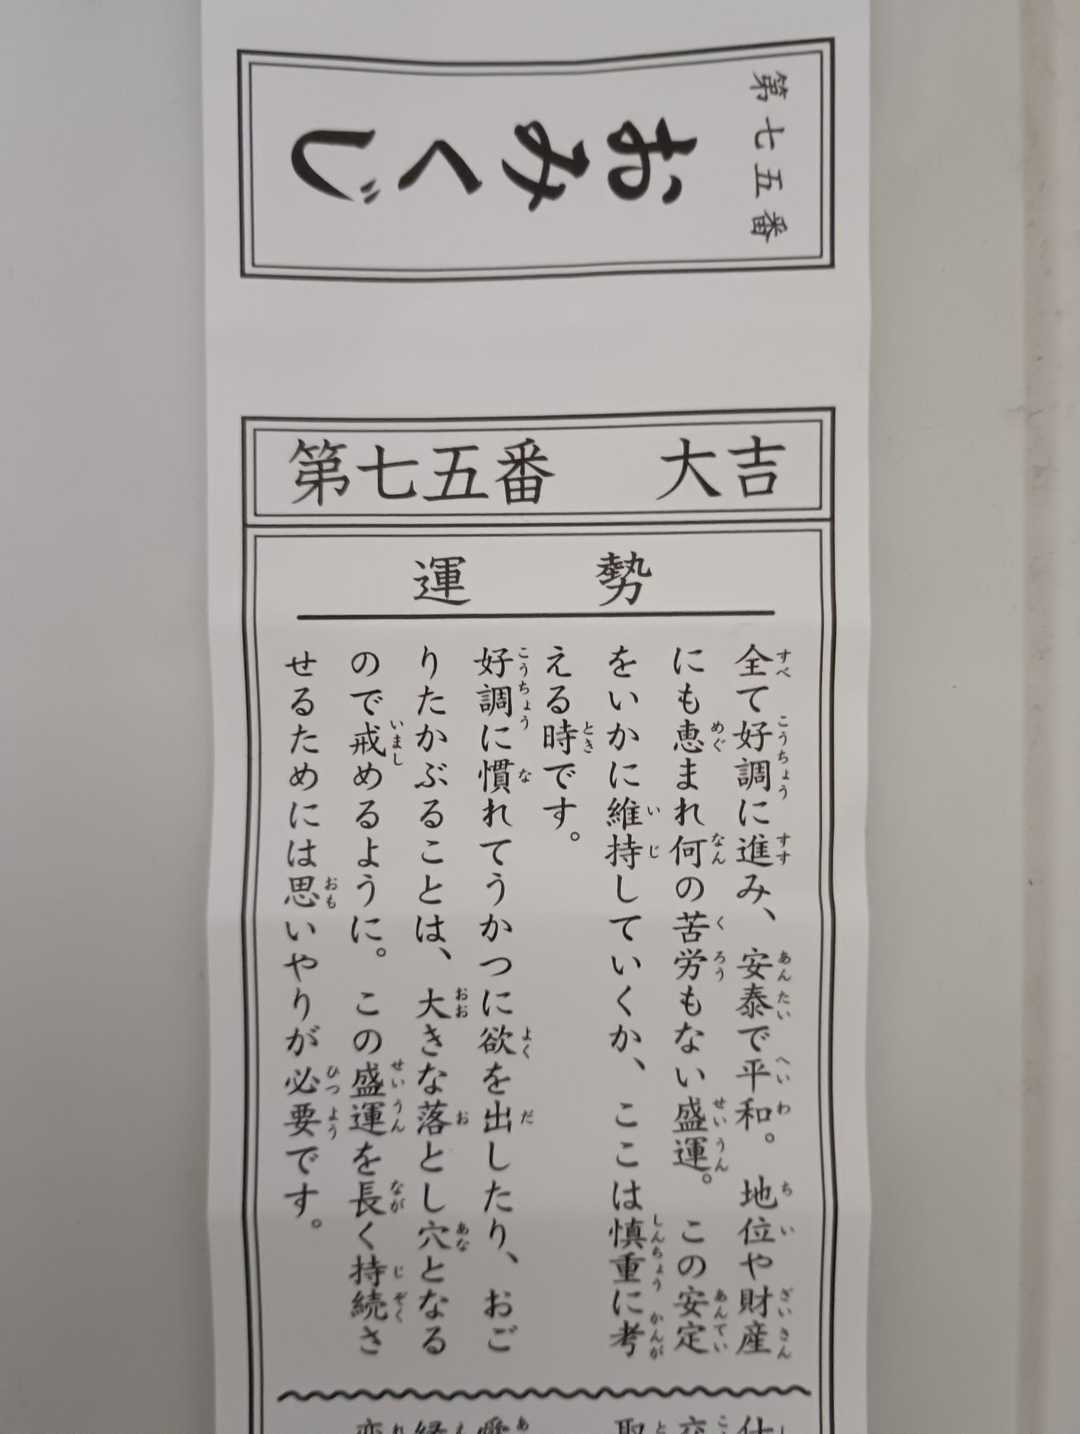 第七五番
おみくじ
第七五番 大吉
運勢
全て好調に進み、安泰で平和。地位や財産
にも恵まれ何の苦労もない盛運。この安定
をいかに維持していくか、ここは慎重に考
える時です。
好調に慣れてうかつに欲を出したり、おご
りたかぶることは、大きな落とし穴となる
ので戒めるように。この盛運を長く持続さ
せるためには思いやりが必要です。